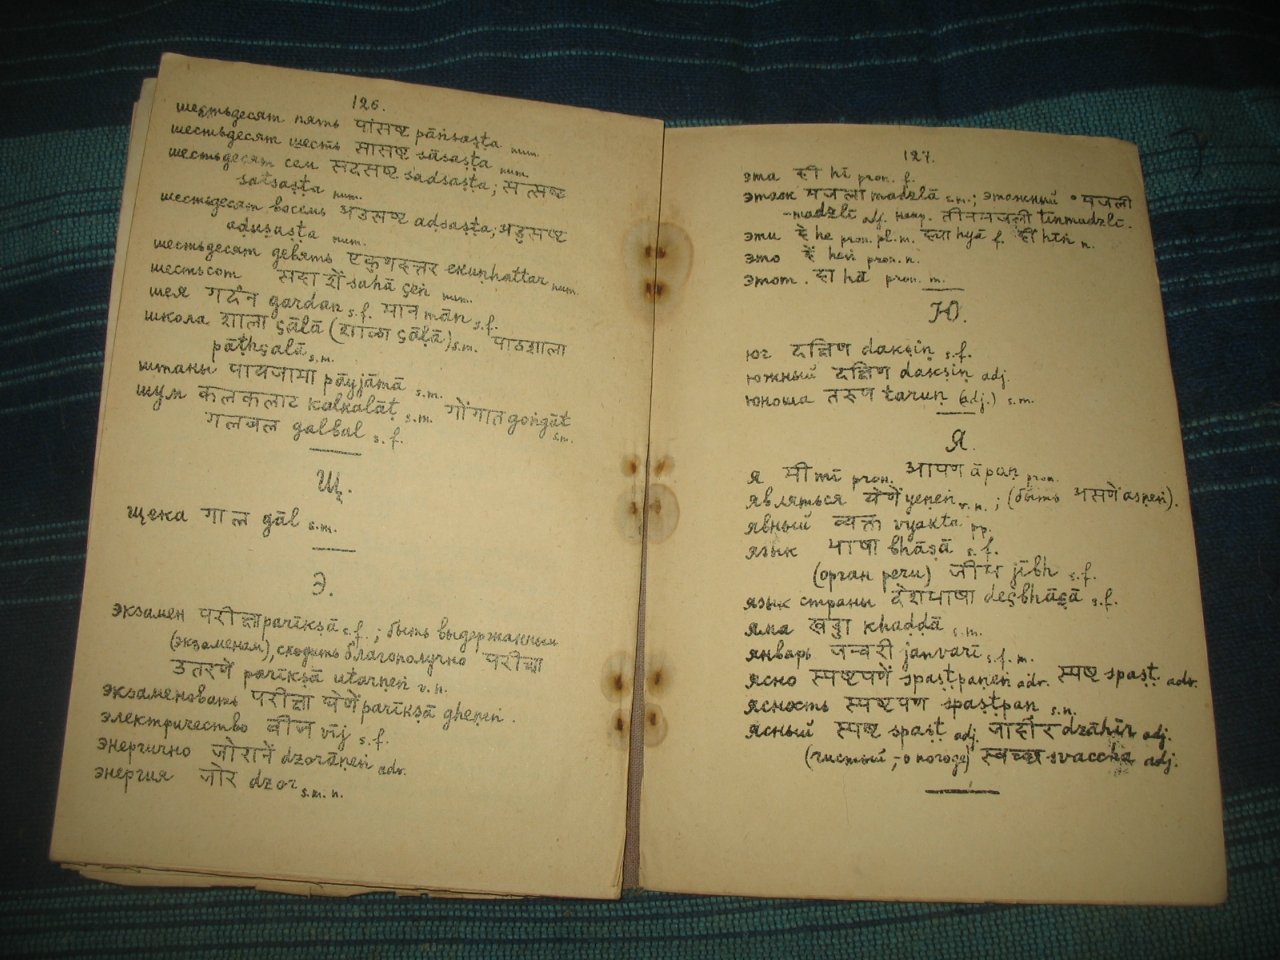 126.
шестьдесят пять पांसष्ट pāṅsaṣṭa num.
шестьдесят шесть सासष्ट sāsaṣṭa num.
шестьдесят сем सदसष्ट sadsaṣṭa; सत्सष्ट
satsaṣṭa num.
шестьдесят восемь अडसष्ट aḍsaṣṭa; अडुसष्ट
aḍusaṣṭa num.
шестьдесят девять एकुणहत्तर ekuṇhattar num.
шестьсот सहा शें sahā çeṅ num.
шея गर्दन gardan s.f. मान mān s.f.
школа शाला çālā (शाळा çāḷā) s.m. पाठशाला
pāṭhçalā s.m.
штаны पायजामा pāyjāmā s.m.
шум कलकलाट kalkalāṭ s.m. गोंगात goṅgāt s.m.
गलबल galbal s.f.
Щ.
щека गाल gāl s.m.
Э.
экзамен परीक्षा parīkṣā s.f.; быть выдержанным
(экзаменам), сходить благополучно परीक्षा
उतरणें parīkṣā utarṇeṅ v.n.
экзаменовать परीक्षा घेणें parīkṣā gheṇeṅ.
электричество वीज vīj s.f.
энергично जोरानें dzorāṇeṅ adv.
энергия जोर dzor s.m.n.
127.
эта ही hī pron. f.
этаж मजला madzlā s.m.; этажный ॰मजली
-madzlī adj. напр. तीनमजली tīnmadzlī.
эти हे he pron. pl. m. ह्या hyā f. हीं hīṅ n.
это हें heṅ pron. n.
этот. हा hā pron. m.
Ю.
юг दक्षिण dakṣiṇ s.f.
южный दक्षिण dakṣiṇ adj.
юноша तरुण taruṇ (adj.) s.m.
Я.
я मी mī pron. आपण āpaṇ pron.
являться येणें yeṇeṅ v.n.; (быть असणें asṇeṅ).
явный व्यक्त vyakta pp.
язык भाषा bhāṣā s.f.
(орган речи) जीभ jībh s.f.
язык страны देशभाषा deçbhāṣā s.f.
яма खड्डा khaḍḍā s.m.
январь जन्वरी janvarī s.f.m.
ясно स्पष्टपणें spaṣṭpaṇeṅ adv. स्पष्ट spaṣṭ adv.
ясность स्पष्टपण spaṣṭpaṇ s.n.
ясный स्पष्ट spaṣṭ adj. जाहीर dzāhīr adj.
(чистый, -о погоде) स्वच्छ svaccha adj.